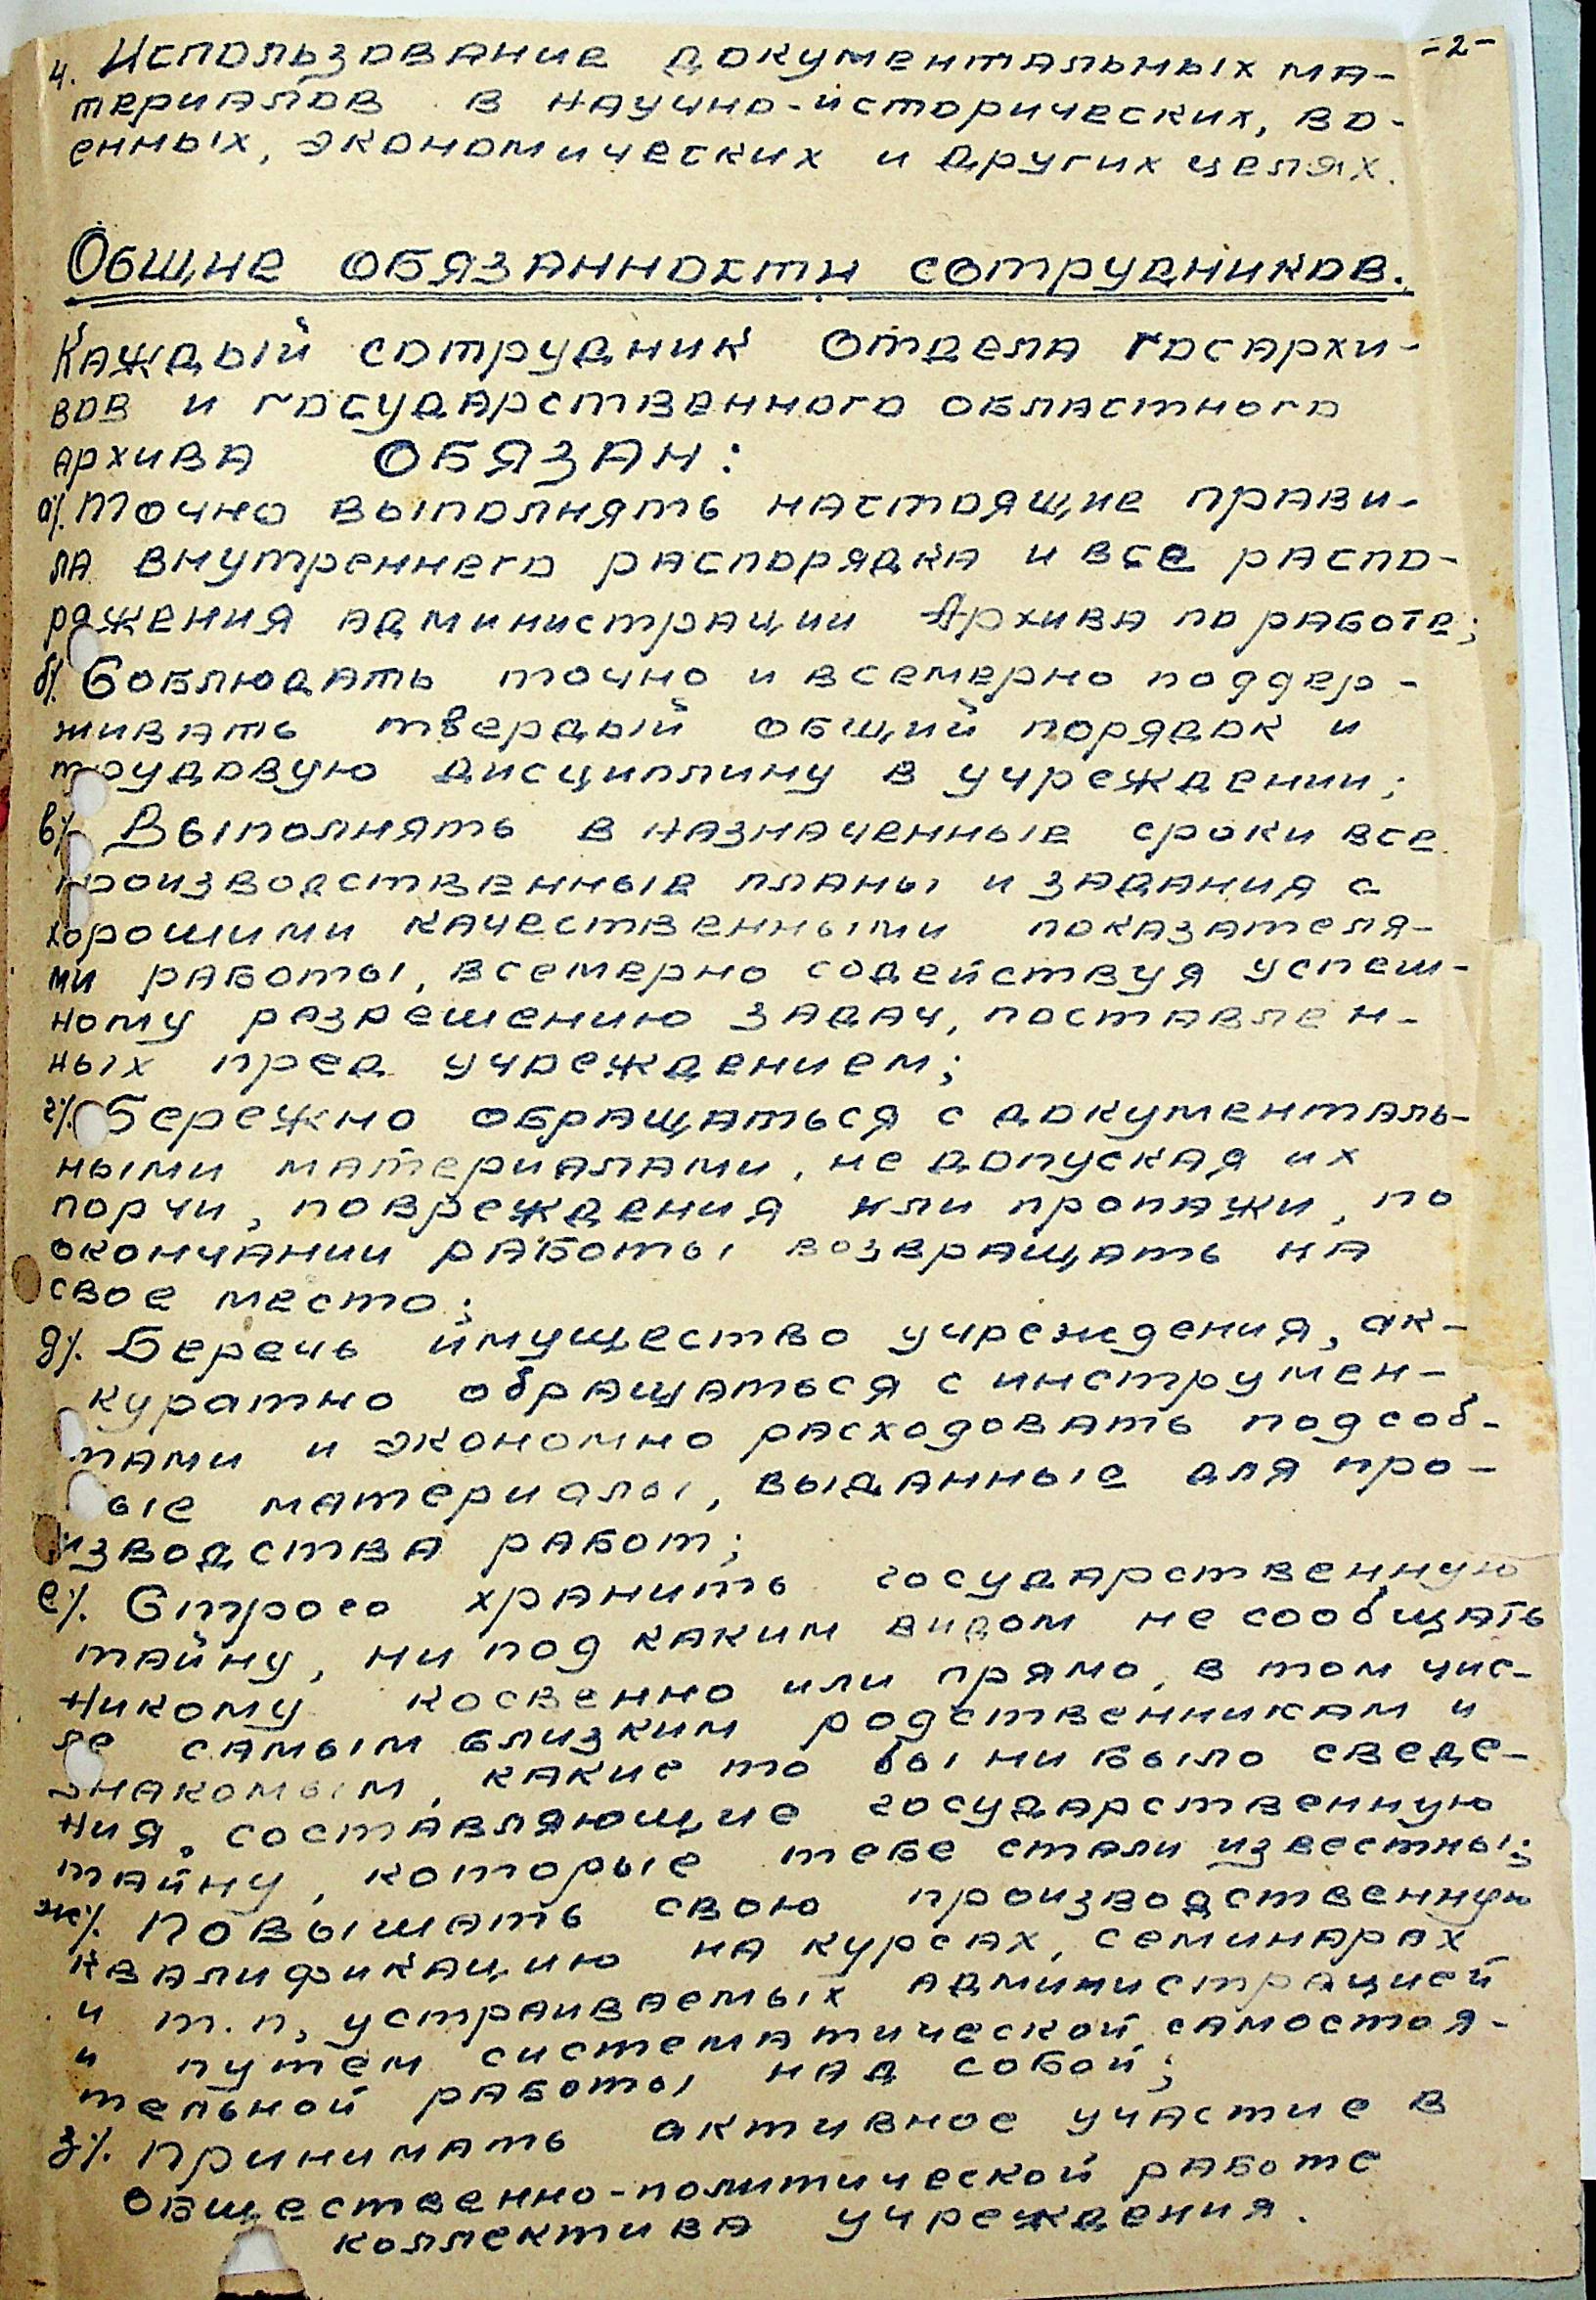 -2-
4. Использование документальных ма-
териалов в научно-исторических, во-
енных, экономических и других целях.
Общие обязанности сотрудников.
Каждый сотрудник Отдела госархи-
вов и государственного областного
архива ОБЯЗАН:
а/. Точно выполнять настоящие прави-
ла внутреннего распорядка и все распо-
ряжения администрации Архива по работе;
б/. Соблюдать точно и всемерно поддер-
живать твердый общий порядок и
трудовую дисциплину в учреждении;
в/. Выполнять в назначенные сроки все
производственные планы и задания с
хорошими качественными показателя-
ми работы, всемерно содействуя успеш-
ному разрешению задач, поставлен-
ных пред учреждением;
г/. Бережно обращаться с документаль-
ными материалами, не допуская их
порчи, повреждения или пропажи, по
окончании работы возвращать на
свое место;
д/. Беречь имущество учреждения, ак-
куратно обращаться с инструмен-
тами и экономно расходовать подсоб-
ые материалы, выданные для про-
изводства работ;
е/. Строго хранить государственную
тайну, ни под каким видом не сообщать
никому косвенно или прямо, в том чис-
ле самым близким родственникам и
знакомым, какие то бы ни было сведе-
ния, составляющие государственную
тайну, которые тебе стали известны;
ж/. Повышать свою производственную
квалификацию на курсах, семинарах
и т.п, устраиваемых администрацией
и путем систематической самостоя-
тельной работы над собой;
з/. Принимать активное участие в
общественно-политической работе
коллектива учреждения.